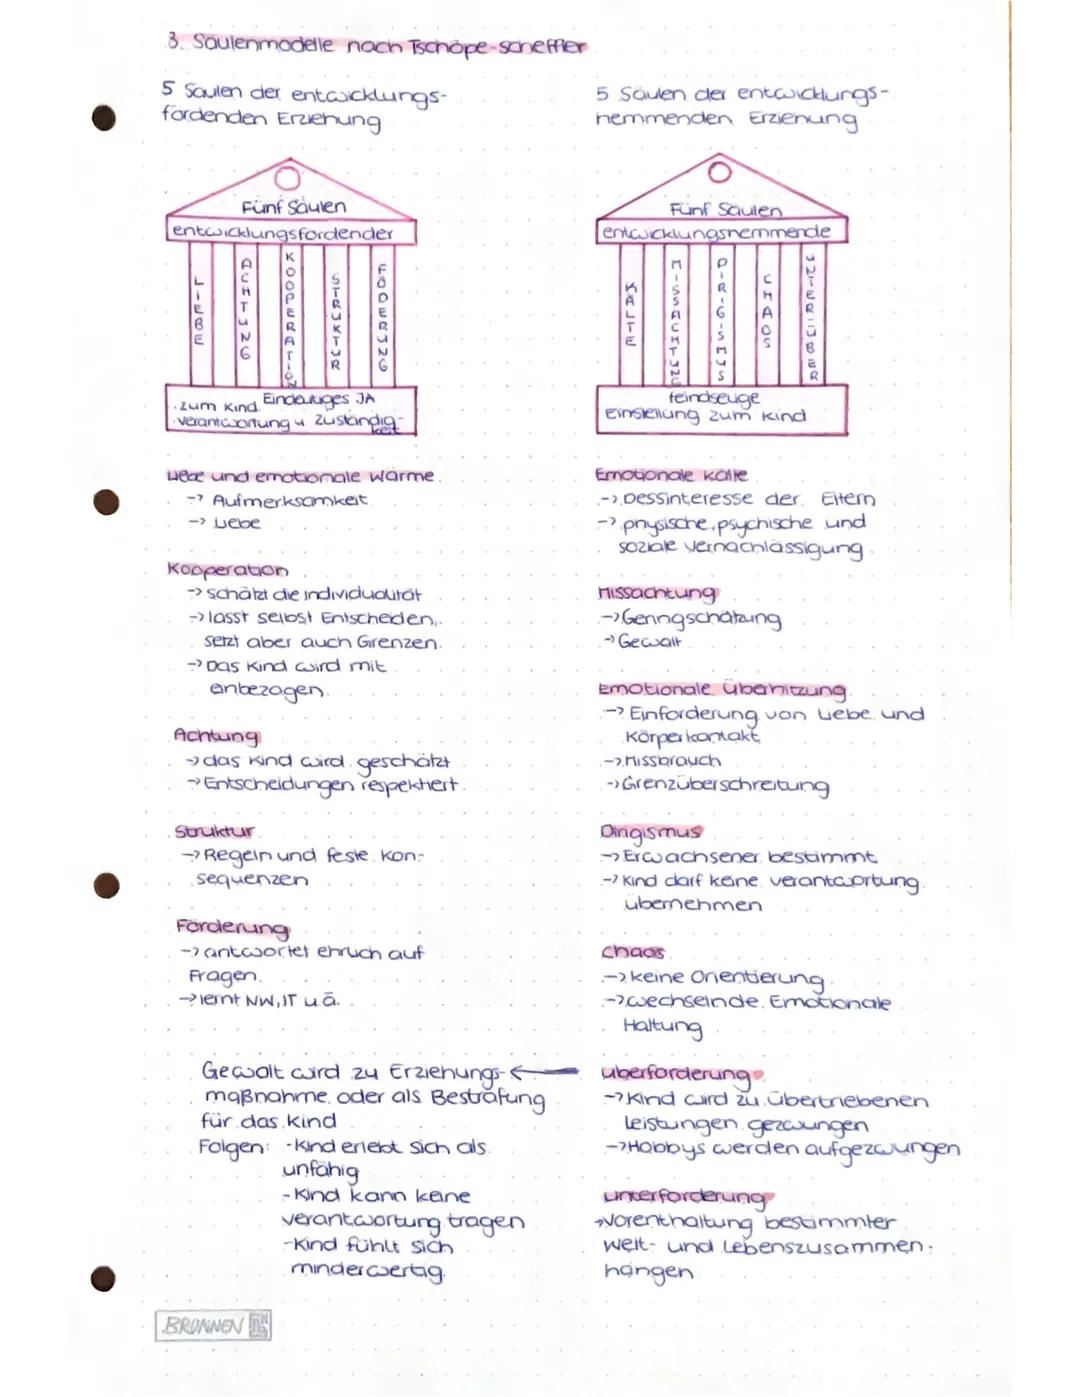 3. Säulenmodelle nach Tschöpe-scheffler
5 Säulen der entwicklungs-
fördenden Erziehung
Fünf Säulen
entwicklungsfördender
LIEBE
ACHTUNG
KOOPERATION
STRUKTUR
FÖDERUNG
Eindeutiges JA
zum Kind
verantwortung u Zuständig-
keit
Liebe und emotionale Wärme
-> Aufmerksamkeit
-> Liebe
Kooperation
-> schätzt die individualität
-> lässt selbst Entscheiden,
setzt aber auch Grenzen
-> Das Kind wird mit
einbezogen
Achtung
-> das Kind wird geschätzt
-> Entscheidungen respektiert
Struktur
-> Regeln und feste Kon-
sequenzen
Förderung
-> antwortet ehrlich auf
Fragen
-> lernt NW, IT u.ä.
5 Säulen der entwicklungs-
hemmenden Erziehung
Fünf Säulen
entwicklungshemmende
KÄLTE
MISSACHTUNG
DIRIGISMUS
CHAOS
UNTER-ÜBER
feindselige
Einstellung zum Kind
Emotionale Kälte
-> Dessinteresse der Eltern
-> physische, psychische und
soziale Vernachlässigung
Missachtung
-> Geringschätzung
-> Gewalt
Emotionale Überhitzung
-> Einforderung von Liebe und
Körperkontakt
-> Missbrauch
-> Grenzüberschreitung
Dirigismus
-> Erwachsener bestimmt
-> Kind darf keine verantwortung
übernehmen
Chaos
-> keine Orientierung
-> wechselnde Emotionale
Haltung
überforderung
-> Kind wird zu übertriebenen
Leistungen gezwungen
-> Hobbys werden aufgezwungen
unterforderung
-> Vorenthaltung bestimmter
Welt- und Lebenszusammen-
hängen
Gewalt wird zu Erziehungs-
maßnahme oder als Bestrafung
für das Kind
Folgen: -Kind erlebt sich als
unfähig
-Kind kann keine
verantwortung tragen
-Kind fühlt sich
minderwertig
BRUNNEN